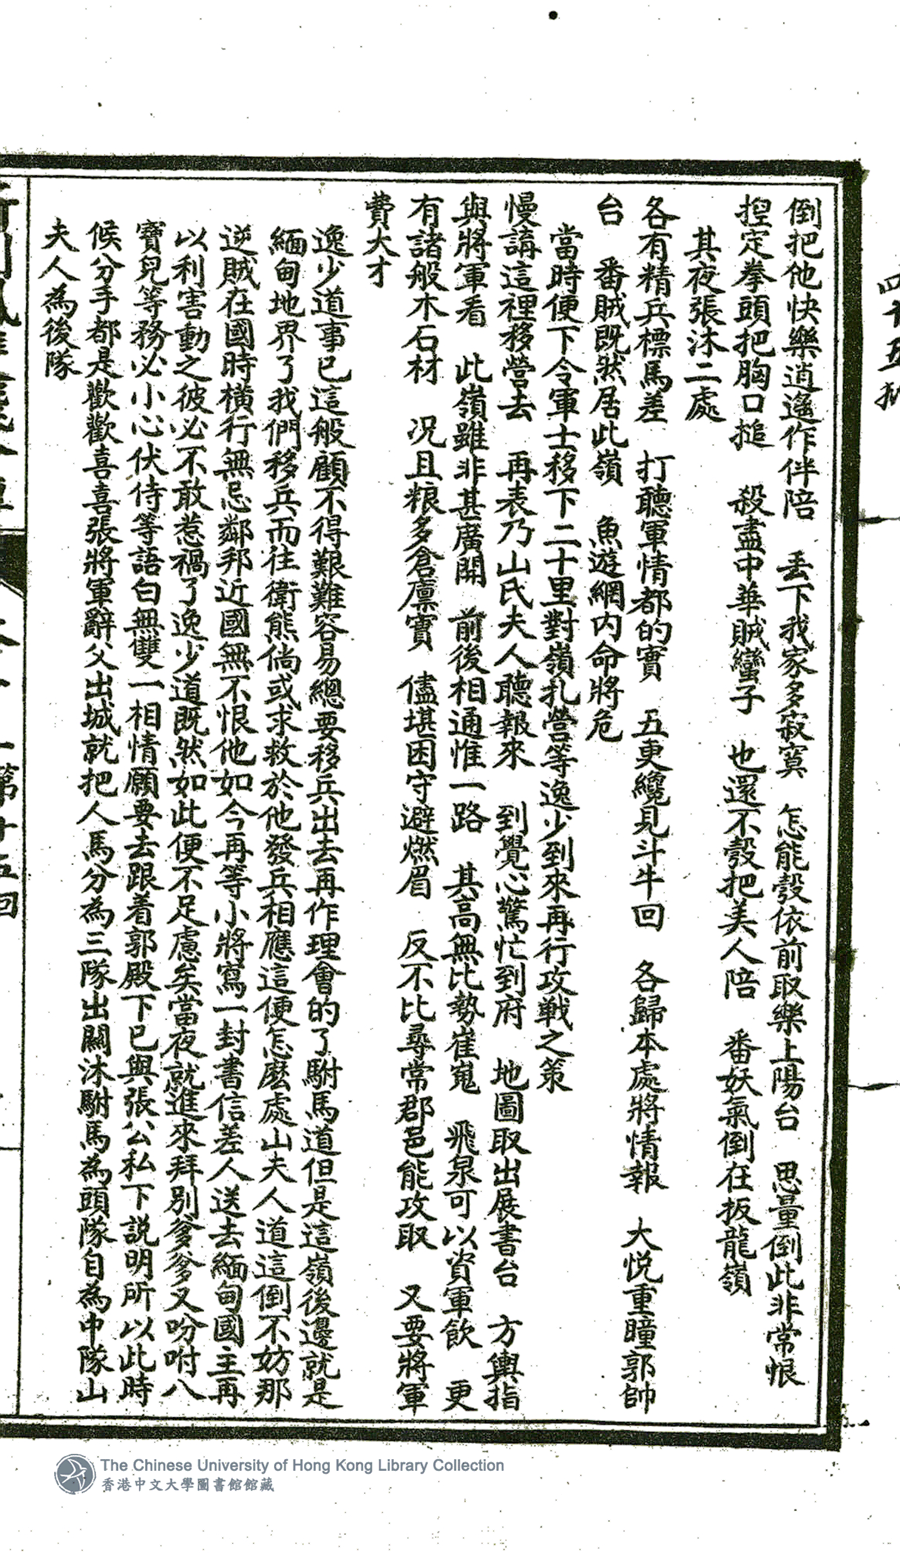 倒把他快樂逍遙作伴陪　丢下我家多寂寞　怎能彀依前取樂上陽台　思量倒此非常恨
揑定拳頭把胸口搥　殺盡中華賊蠻子　也還不彀把美人陪　番妖氣倒在扳龍嶺
其夜張沐二處
各有精兵標馬差　打聽軍情都的實　五更纔見斗牛回　各歸本處將情報　大悅重瞳郭帥
台　番賊既然居此嶺　魚遊網內命將危
當時便下令軍士移下二十里對嶺扎營等逸少到來再行攻戰之策
慢講這裡移營去　再表乃山氏夫人聽報來　到覺心驚忙到府　地圖取出展書台　方輿指
與將軍看　此嶺雖非甚廣開　前後相通惟一路　其高無比勢崔嵬　飛泉可以資軍飲　更
有諸般木石材　况且粮多倉廪實　儘堪困守避燃眉　反不比尋常郡邑能攻取　又要將軍
費大才
逸少道事已這般顧不得艱難容易總要移兵出去再作理會的了駙馬道但是這嶺後邊就是
緬甸地界了我們移兵而往衛熊倘或求救於他發兵相應這便怎麽處山夫人道這倒不妨那
逆賊在國時橫行無忌鄰邦近國無不恨他如今再等小將寫一封書信差人送去緬甸國主再
以利害動之彼必不敢惹禍了逸少道既然如此便不足慮矣當夜就進來拜別爹爹又吩咐八
寶兒等務必小心伏侍等語白無雙一相情願要去跟着郭殿下已與張公私下說明所以此時
候分手都是歡歡喜喜張將軍辭父出城就把人馬分為三隊出關沐駙馬為頭隊自為中隊山
夫人為後隊
第十五回
四十五
The Chinese University of Hong Kong Library Collection
香港中文大學圖書館館藏